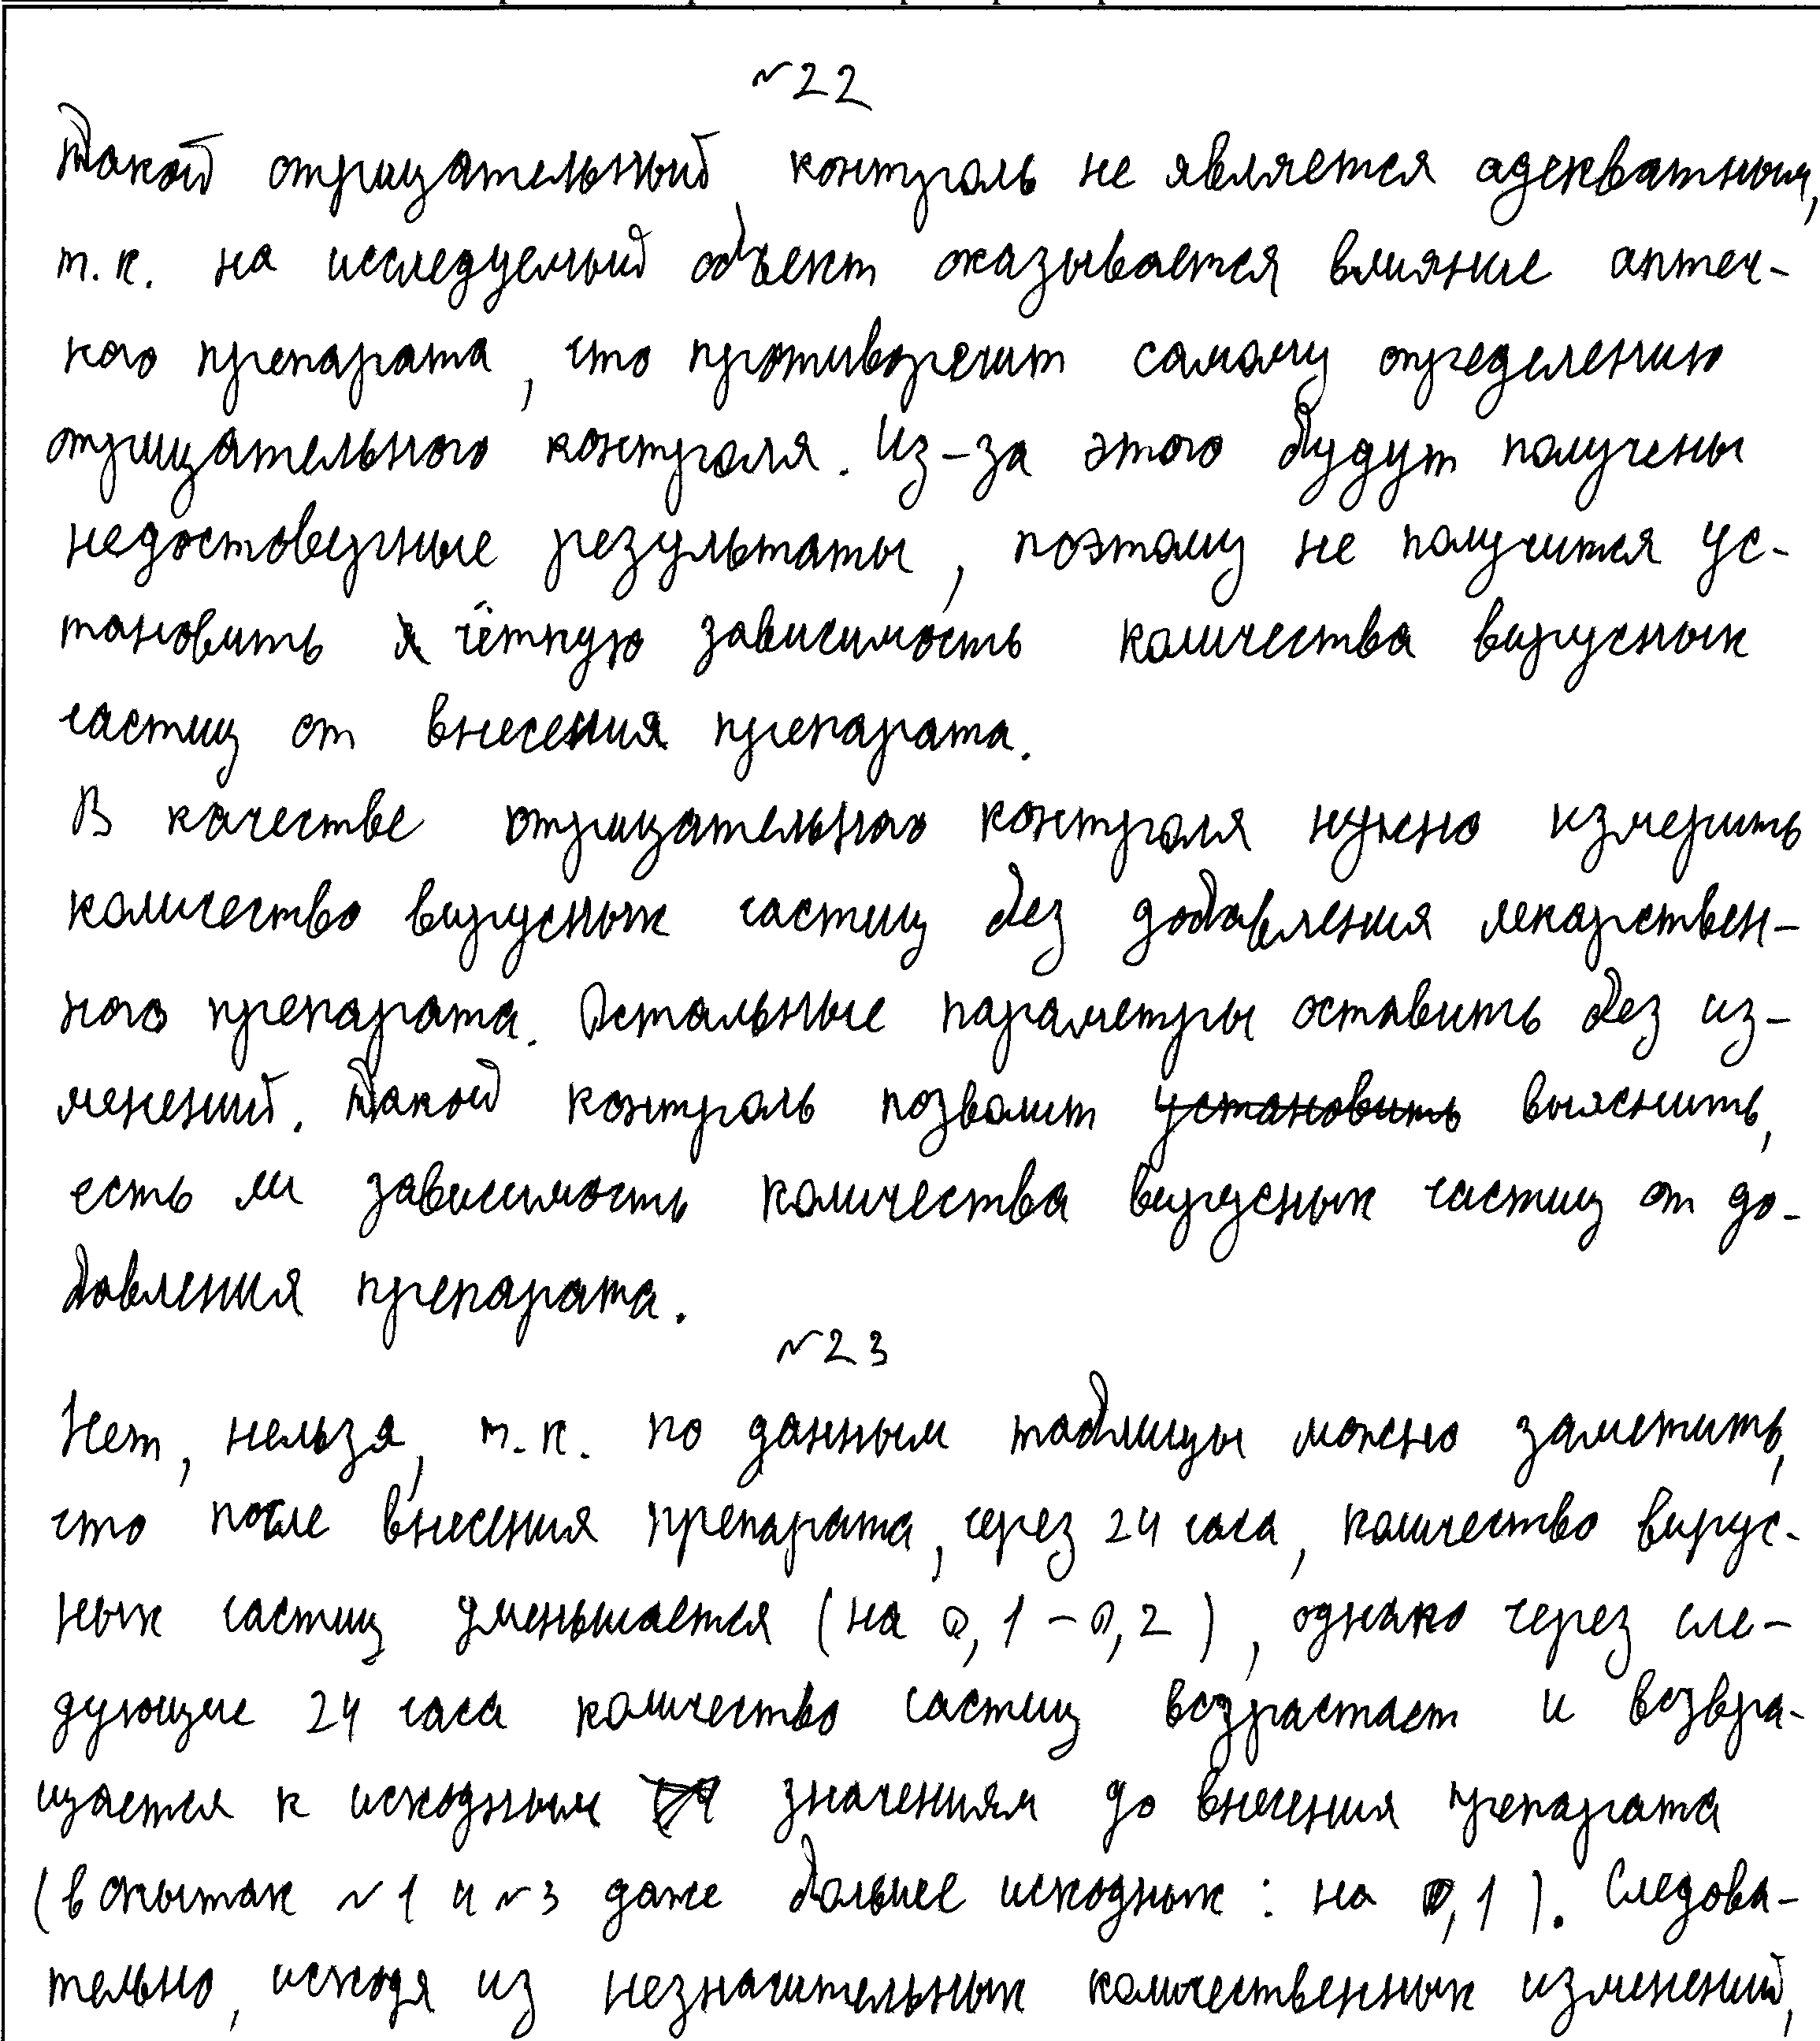 №22
Такой отрицательный контроль не является адекватным,
т.к. на исследуемый объект оказывается влияние аптеч-
ного препарата, что противоречит самому определению
отрицательного контроля. Из-за этого будут получены
недостоверные результаты, поэтому не получится ус-
тановить чёткую зависимость количества вирусных
частиц от внесения препарата.
В качестве отрицательного контроля нужно измерить
количество вирусных частиц без добавления лекарствен-
ного препарата. Остальные параметры оставить без из-
менений. Такой контроль позволит установить выяснить,
есть ли зависимость количества вирусных частиц от до-
бавления препарата.
№23
Нет, нельзя, т.к. по данным таблицы можно заметить,
что после внесения препарата, через 24 часа, количество вирус-
ных частиц уменьшается (на 0,1-0,2), однако через сле-
дующие 24 часа количество частиц возрастает и возвра-
щается к исходным значениям до внесения препарата
(в опытах №1 и №3 даже больше исходных: на 0,1). Следова-
тельно, исходя из незначительных количественных изменений,